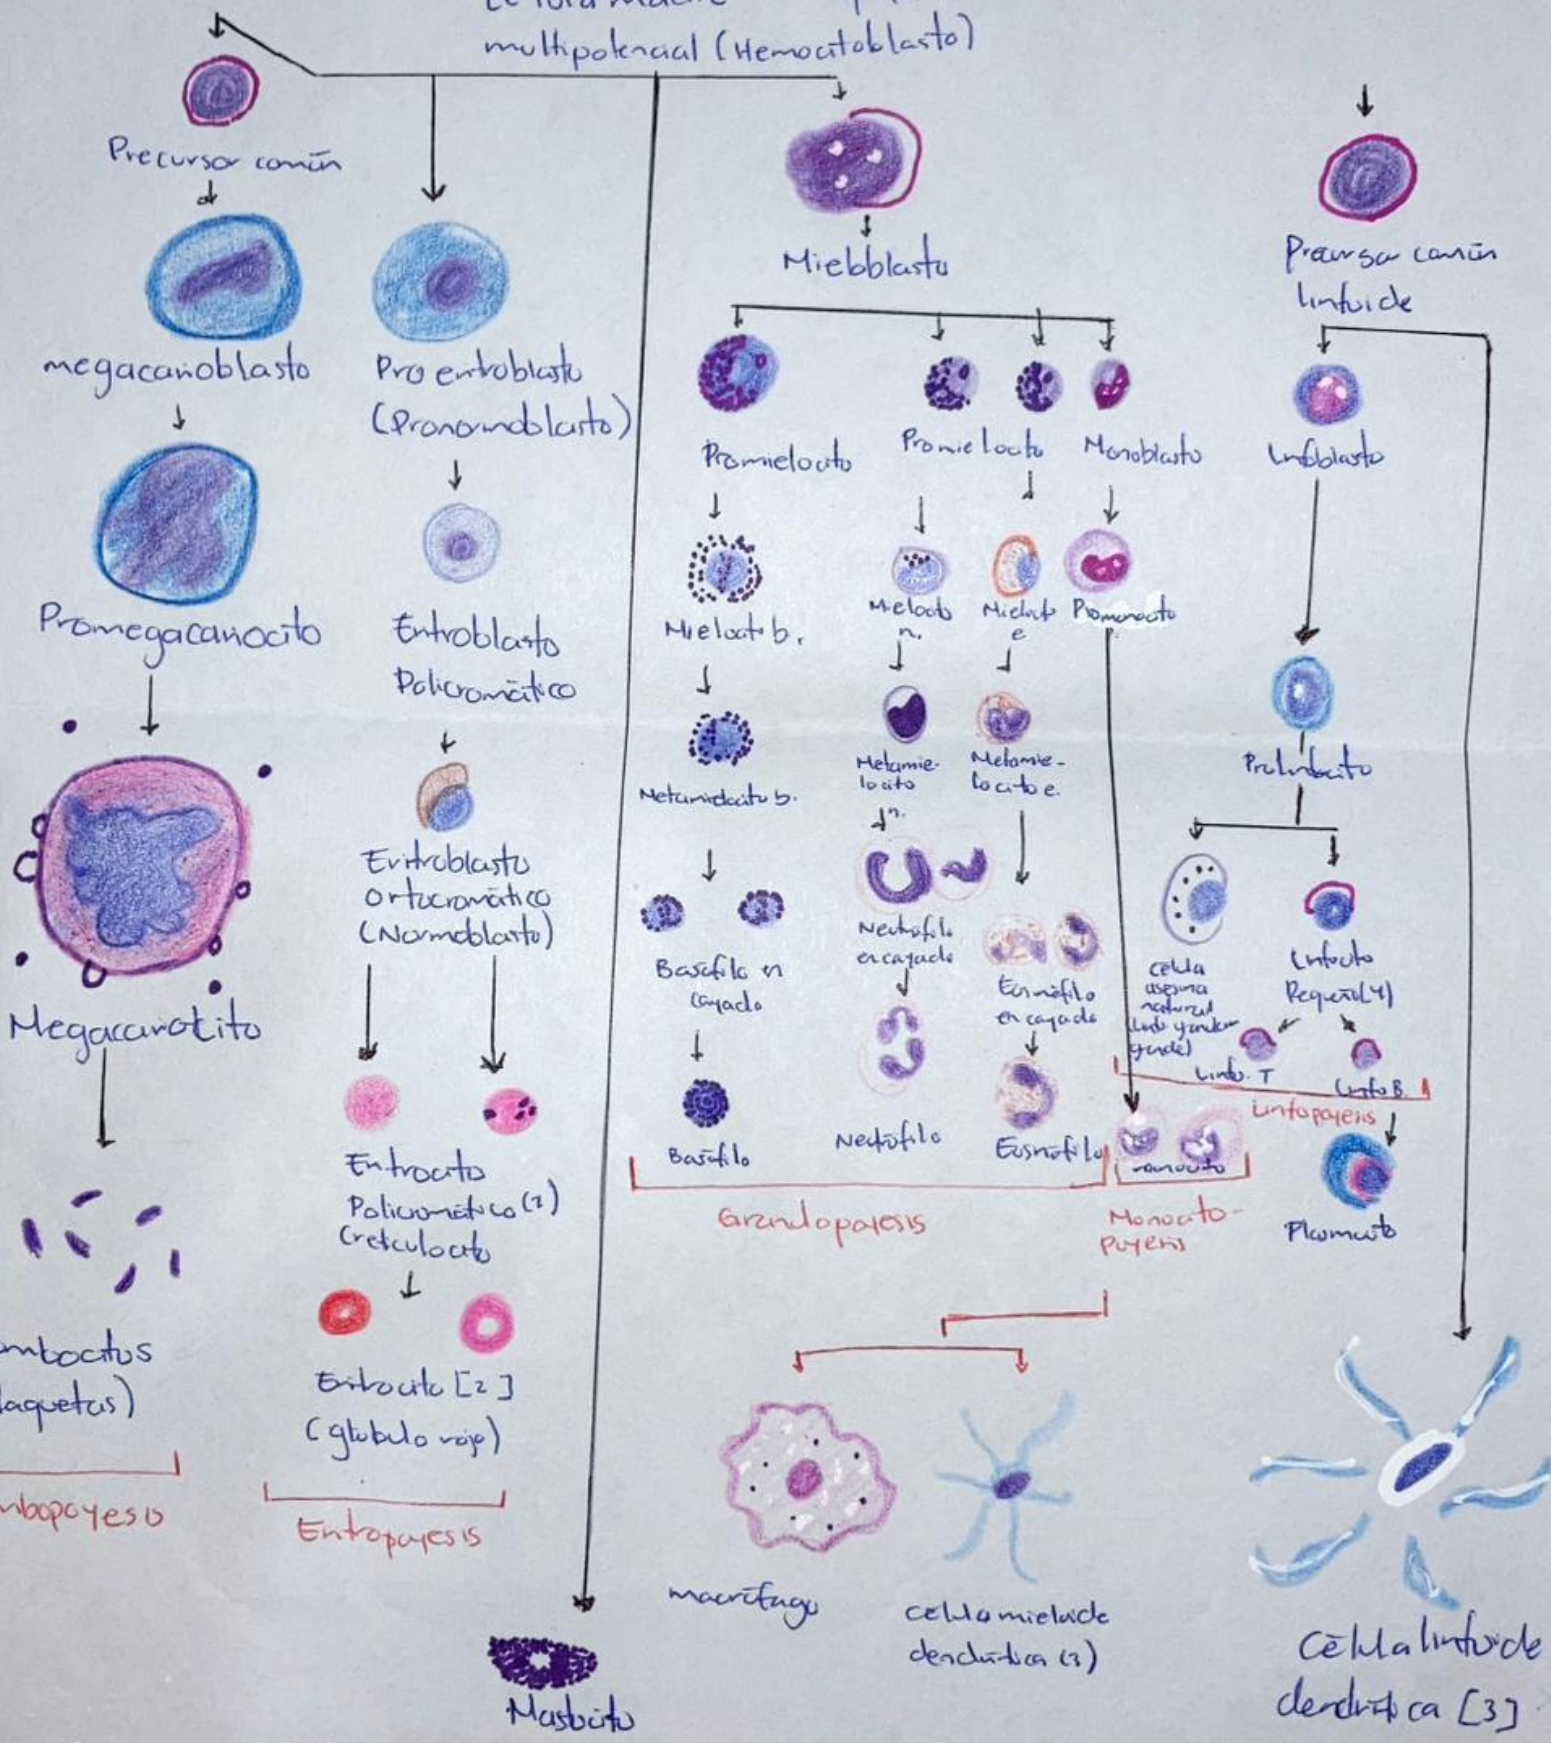 multipotencial (Hemocitoblasto)
Precursor común
megacarioblasto
Promegacariocito
Megacariocito
mbocitos
laquetas)
mbopoyesis
Proeritroblasto
(Pronormoblasto)
Eritroblasto
Policromático
Eritroblasto
Ortocromático
(Normoblasto)
Eritrocito
Policromático (2)
(reticulocito
Eritrocito [2]
(glóbulo rojo)
Eritropoyesis
Mastocito
Mieloblasto
Promielocito
Mielocito b.
Metamielocito b.
Basófilo en
cayado
Basófilo
Promielocito
Mielocito
n.
Metamie-
locito
n.
Neutrófilo
en cayado
Neutrófilo
Mielocito
e
Metamie-
locito e.
Eosinófilo
en cayado
Eosinófilo
Granulopoyesis
Monoblasto
Promonocito
monocito
Monocito-
poyesis
macrófago
célula mieloide
dendrítica (3)
Precursor común
linfoide
Linfoblasto
Prolinfocito
célula
asesina
natural
grande)
Linfocito
Pequeño(4)
Linfo. T
Linfo B.
Linfopoyesis
Plasmocito
Célula linfoide
dendrítica [3]